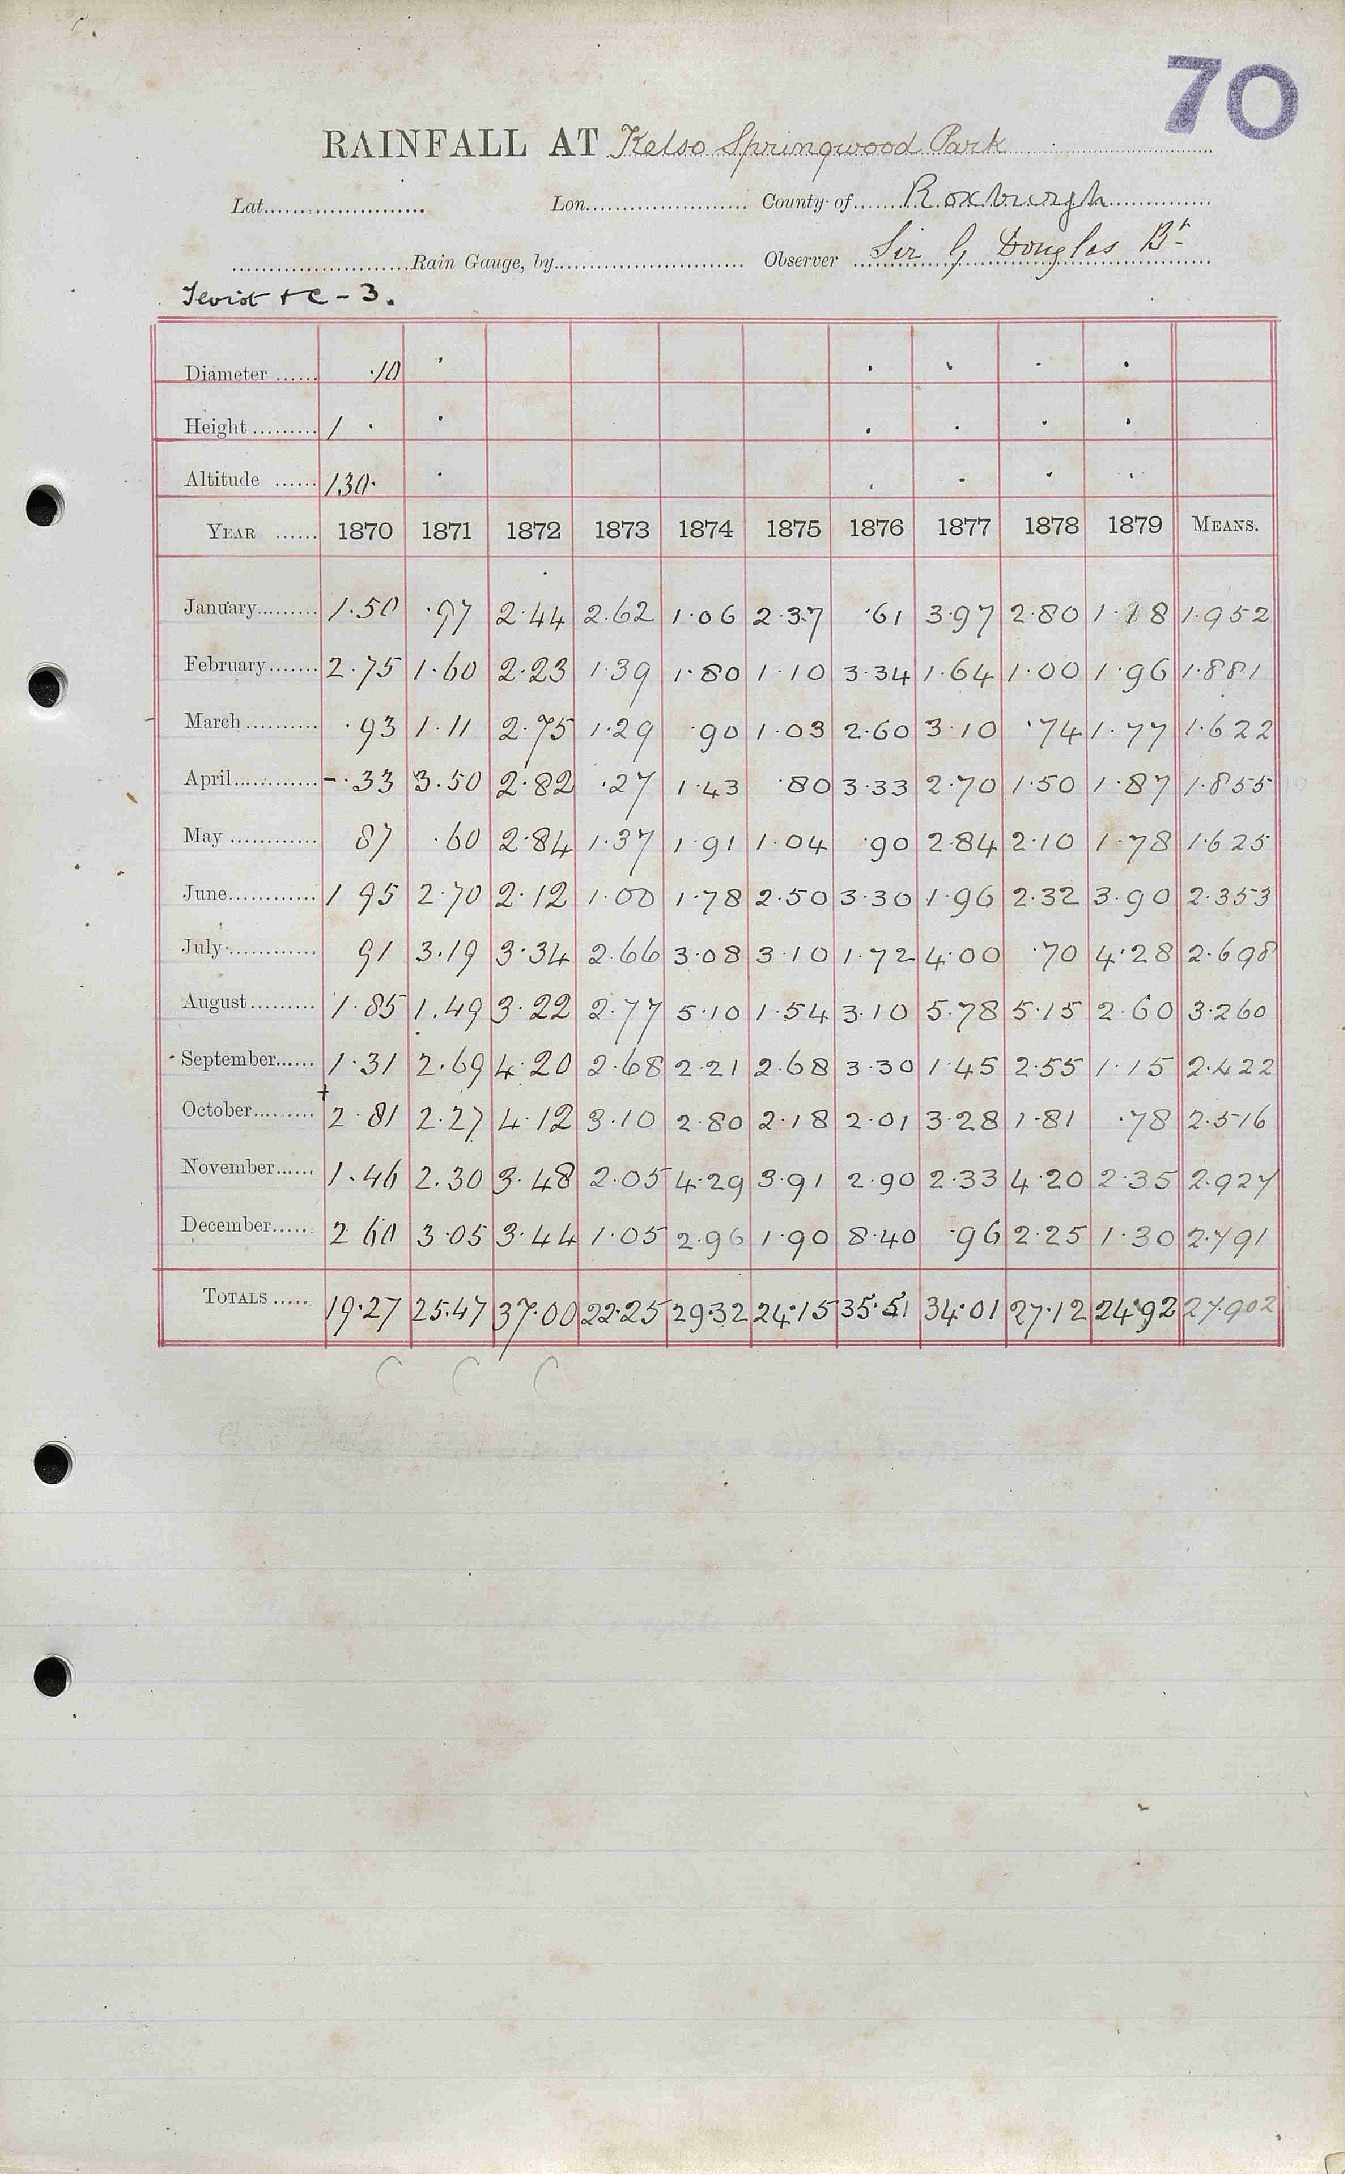 70
RAINFALL AT Kelso Springwood Park
Lat. Lon. County of Roxburgh
Rain Gauge, by Observer Sir G Douglas Bt
Teviot &c - 3.
Diameter ...... ·10
Height ......... 1 ·
Altitude ...... 130·
YEAR ...... 1870 1871 1872 1873 1874 1875 1876 1877 1878 1879 MEANS.
January......... 1·50 ·97 2·44 2.62 1·06 2·37 ·61 3·97 2·80 1·18 1·952
February....... 2·75 1·60 2·23 1·39 1·80 1·10 3·34 1·64 1·00 1·96 1·881
March .......... ·93 1·11 2·75 1·29 ·90 1·03 2·60 3·10 ·74 1·77 1·622
April............ -·33 3·50 2·82 ·27 1·43 ·80 3·33 2·70 1·50 1·87 1·855
May ............ 87 ·60 2·84 1·37 1·91 1·04 ·90 2·84 2·10 1·78 1·625
June............ 1 95 2·70 2·12 1·00 1·78 2·50 3·30 1·96 2·32 3·90 2·353
July ............ 91 3·19 3·34 2·66 3·08 3·10 1·72 4·00 ·70 4·28 2·698
August......... 1·85 1·49 3·22 2·77 5·10 1·54 3·10 5·78 5·15 2·60 3·260
September...... 1·31 2·69 4·20 2·68 2·21 2·68 3·30 1·45 2·55 1·15 2·422
October......... 2·81 2·27 4·12 3·10 2·80 2·18 2·01 3·28 1·81 ·78 2·516
November...... 1·46 2·30 3·48 2·05 4·29 3·91 2·90 2·33 4·20 2·35 2·927
December..... 2 60 3·05 3·44 1·05 2·96 1·90 8·40 ·96 2·25 1·30 2·791
TOTALS ..... 19·27 25·47 37·00 22·25 29·32 24·15 35·51 34·01 27·12 24·92 27·902